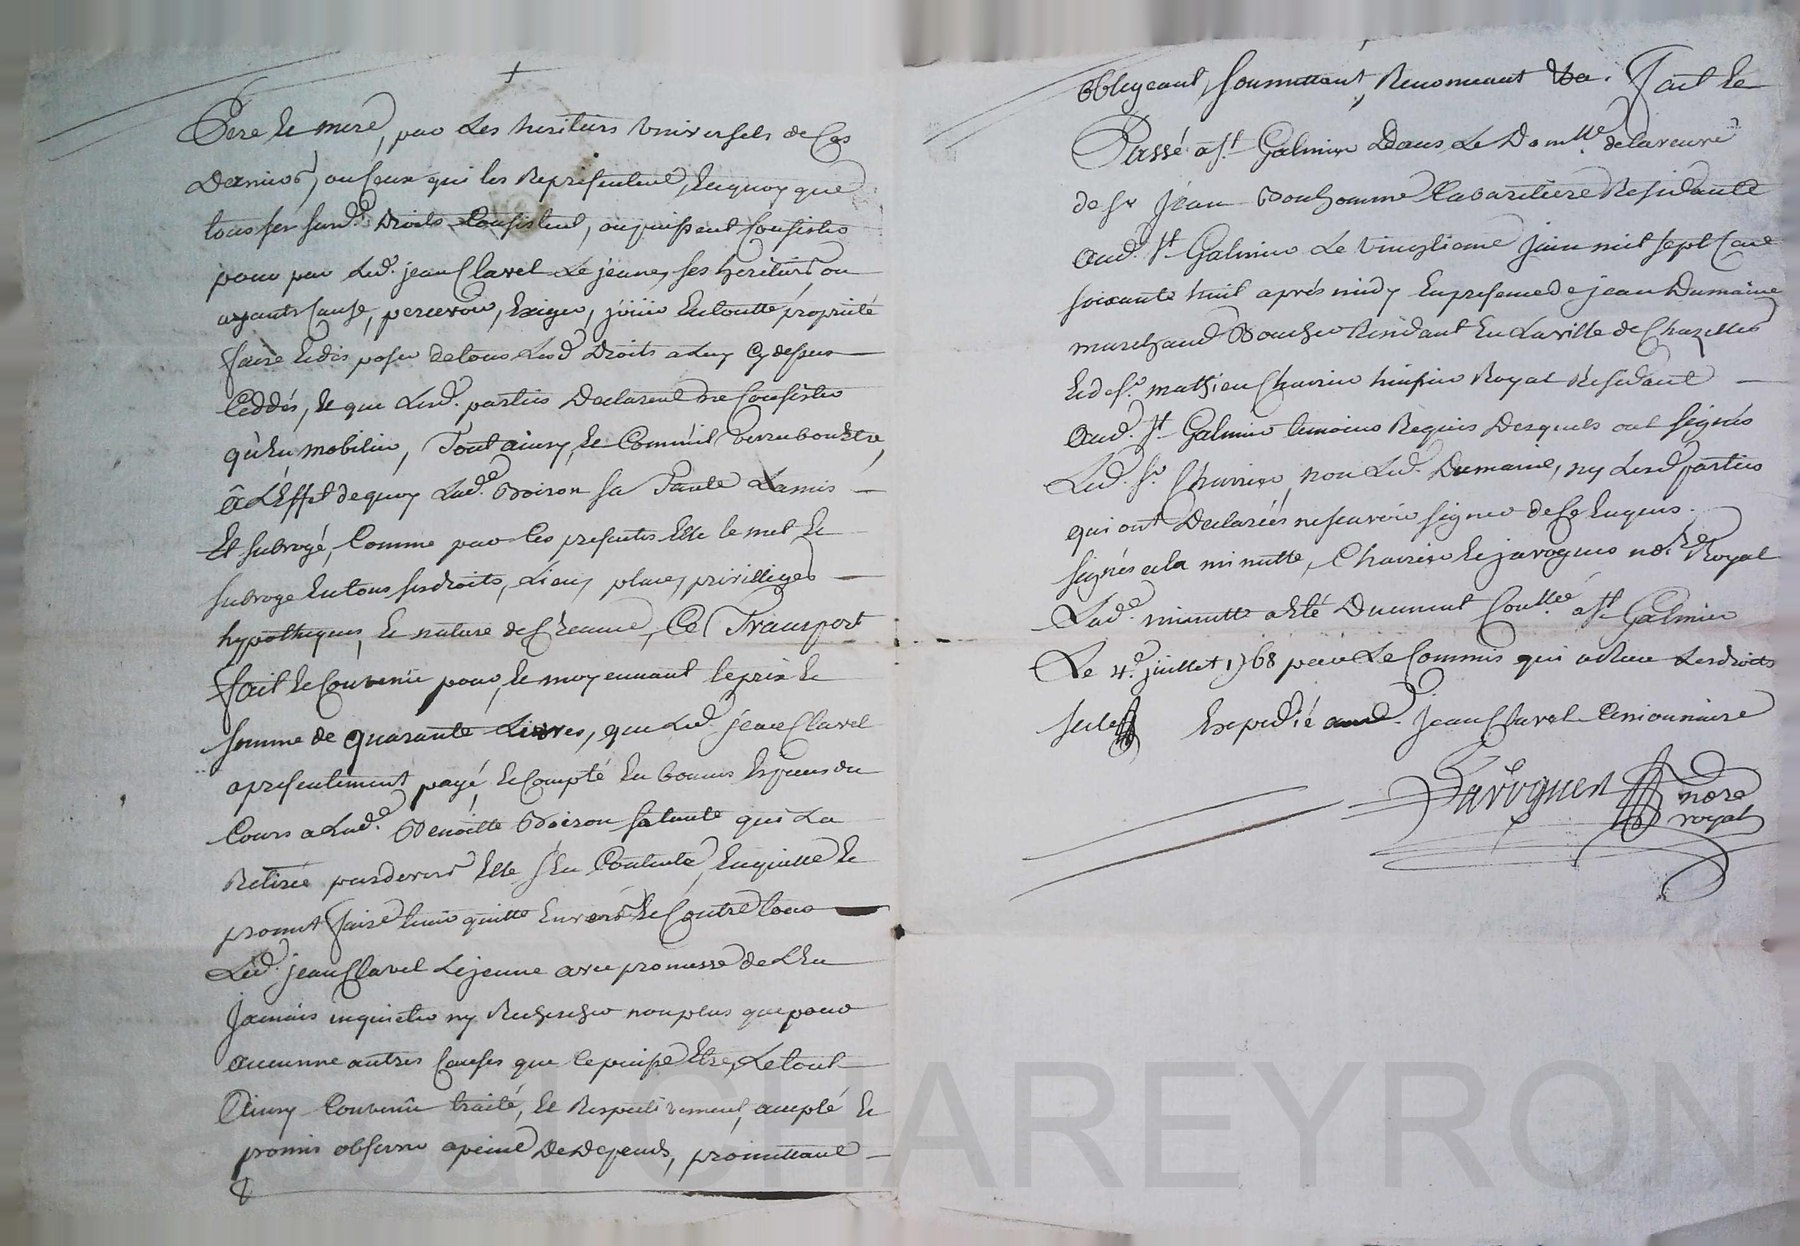 Pere et mere, par les heritiers universels de ces
derniers, ou ceux qui les representent, en quoy que
tous ses susd. droits consistent, ou puissent consister
pour par led. jean Clavel le jeune, ses heritiers ou
ayants cause, percevoir, exiger, jöuir en toutte propriété
faire et disposer de tous lesd droits a luy cy dessus
ceddés, et que lesd. parties declarent ne consister
qu'en mobilier, Tout ainsy
â L'Effet de quoy Lad.e Boiron sa Tante La mis
Et subrogé, Comme par ces presentes Elle le met Et
subroge En tous ses droits, Lieu, place, privilliges
hypotheques, et nature de Creance, Ce Transport
fait et convenu pour, et moyennant le prix et
somme de quarante Livres, que led. jean Clavel
a presentement payé, et compté En bonnes Especes du
Cours a Lad.e Benoitte Boiron sa tante qui La
Retirée pardevers Elle s'En Contente, En quitte Et
promet faire tenir quitte Envers Et Contre tous
Led. jean Clavel Le jeune avec promesse de L'En
jamais inquieter ny Rechercher non plus que pour
aucunne autres Causes que ce puisse Etre, Le tout
Ainsy Convenû traité, Et Respectivement, accepté Et
promis observer a peine De Depens, promettant
obligeant, soumettant, Renonceant &a. Fait Et
Passé a St. Galmier Dans Le Dom.lle de la veuve
de Sr Jean Bonhomme Cabaretiere Residante
aud. St Galmier Le vingtieme juin mil sept Cent
soixante huit aprés midy En presence de jean Dumaine
marchand Boucher Residant En La ville de Chazelles
Et de Sr. mathieu Charrier huissier Royal Residant
aud. St. Galmier temoins Requis Desquels ont signés
Led. Sr. Charrier, non Led. Dumaine, ny Lesd parties
qui ont Declarées ne scavoir signer de ce Enquis.
signés a la minutte, Charrier Et javogues no.re Royal
Lad.e minutte a Eté Duement Con.llée a St Galmier
Le 4.e juillet 1768 par Le Commis qui a Reçu Les droits
Expedié aud. jean Clavel Cessionnaire
Javogues
nore
royal
Pascal CHAREYRON